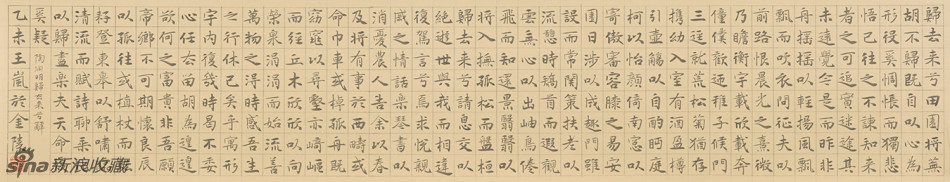 歸去來兮田園將蕪
胡不歸既自以心為
形役奚惆悵而獨悲
悟已往之不諫知來
者之可追寔迷途其
未遠覺今是而昨非
舟搖搖以輕颺風飄
飄而吹衣問征夫以
前路恨晨光之熹微
乃瞻衡宇載欣載奔
僮僕歡迎稚子候門
三逕就荒松菊猶存
攜幼入室有酒盈樽
引壺觴以自酌眄庭
柯以怡顏倚南窗以
寄傲審容膝之易安
園日涉以成趣門雖
設而常關策扶老以
流憩時矯首而遐觀
雲無心以出岫鳥倦
飛而知還景翳翳以
將入撫孤松而盤桓
歸去來兮請息交以
絕遊世與我而相遺
復駕言兮焉求悅親
戚之情話樂琴書以
消憂農人告余以春
及將有事於西疇或
命巾車或棹孤舟既
窈窕以尋壑亦崎嶇
而經丘木欣欣以向
榮泉涓涓而始流善
萬物之得時感吾生
之行休已矣乎寓形
宇內復幾時曷不委
心任去留胡為遑遑
欲何之富貴非吾願
帝鄉不可期懷良辰
以孤往或植杖而耘
耔登東皋以舒嘯臨
清流而賦詩聊乘化
以歸盡樂夫天命復
奚疑
陶淵明歸去來兮辭
乙未王嵐於金陵
sina新浪收藏